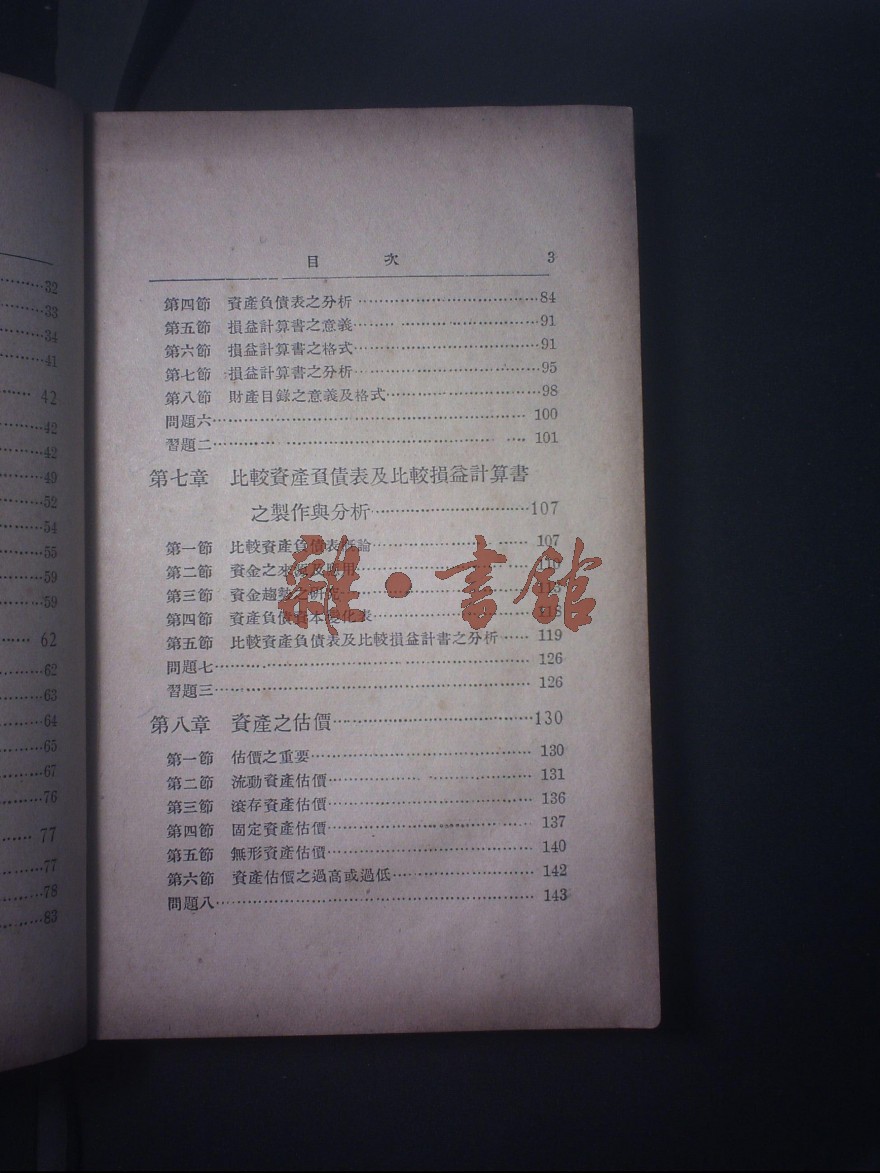 32
33
34
41
42
42
42
49
52
54
55
59
59
62
62
63
64
65
67
76
77
77
78
83
目 次 3
第四節 資產負債表之分析 84
第五節 損益計算書之意義 91
第六節 損益計算書之格式 91
第七節 損益計算書之分析 95
第八節 財產目錄之意義及格式 98
問題六 100
習題二 101
第七章 比較資產負債表及比較損益計算書
之製作與分析 107
第一節 比較資產負債表概論 107
第二節 資金之來源及運用 110
第三節 資金趨勢之研究 113
第四節 資產負債資本變化表 118
第五節 比較資產負債表及比較損益計書之分析 119
問題七 126
習題三 126
第八章 資產之估價 130
第一節 估價之重要 130
第二節 流動資產估價 131
第三節 滾存資產估價 136
第四節 固定資產估價 137
第五節 無形資產估價 140
第六節 資產估價之過高或過低 142
問題八 143
雜·書館